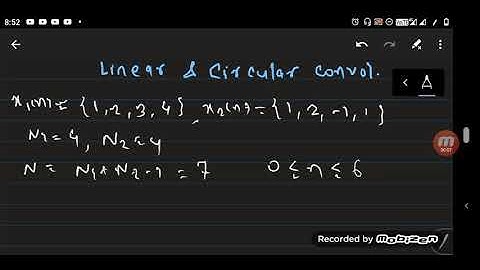 8:52
Linear & Circular convol.
x₁(n) = {1, 2, 3, 4}, x₂(n) = {1, 2, -1, 1}
N₁ = 4, N₂ = 4
N = N₁ + N₂ - 1 = 7 0 ≤ n ≤ 6
Recorded by mobizen